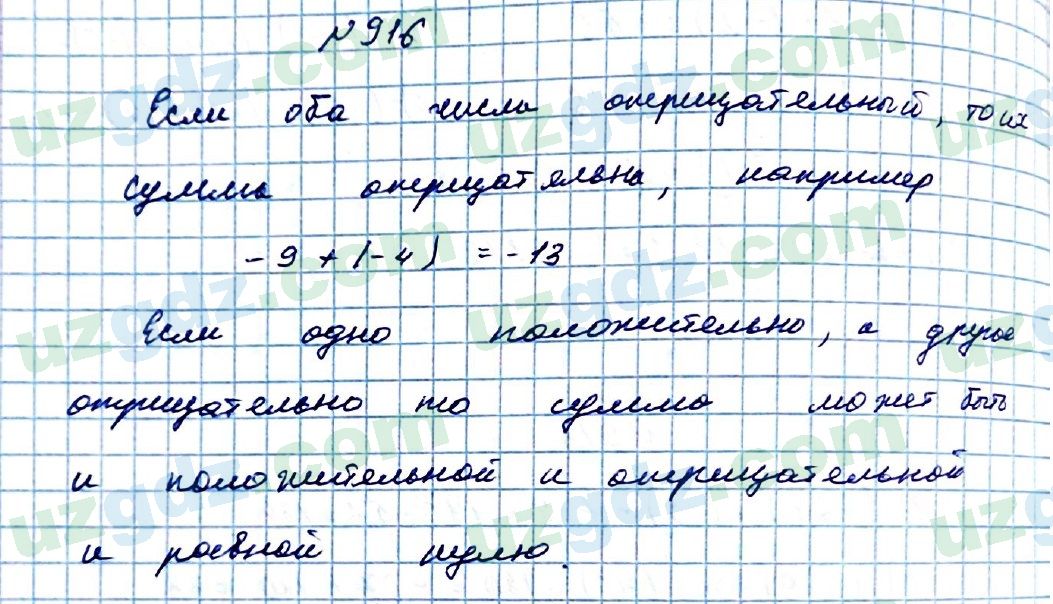 №916
Если оба числа отрицательный, то их
сумма отрицательна, например
-9 + (-4) = -13
Если одно положительно, а другое
отрицательно то сумма может быть
и положительной и отрицательной
и равной нулю.
uzgdz.com